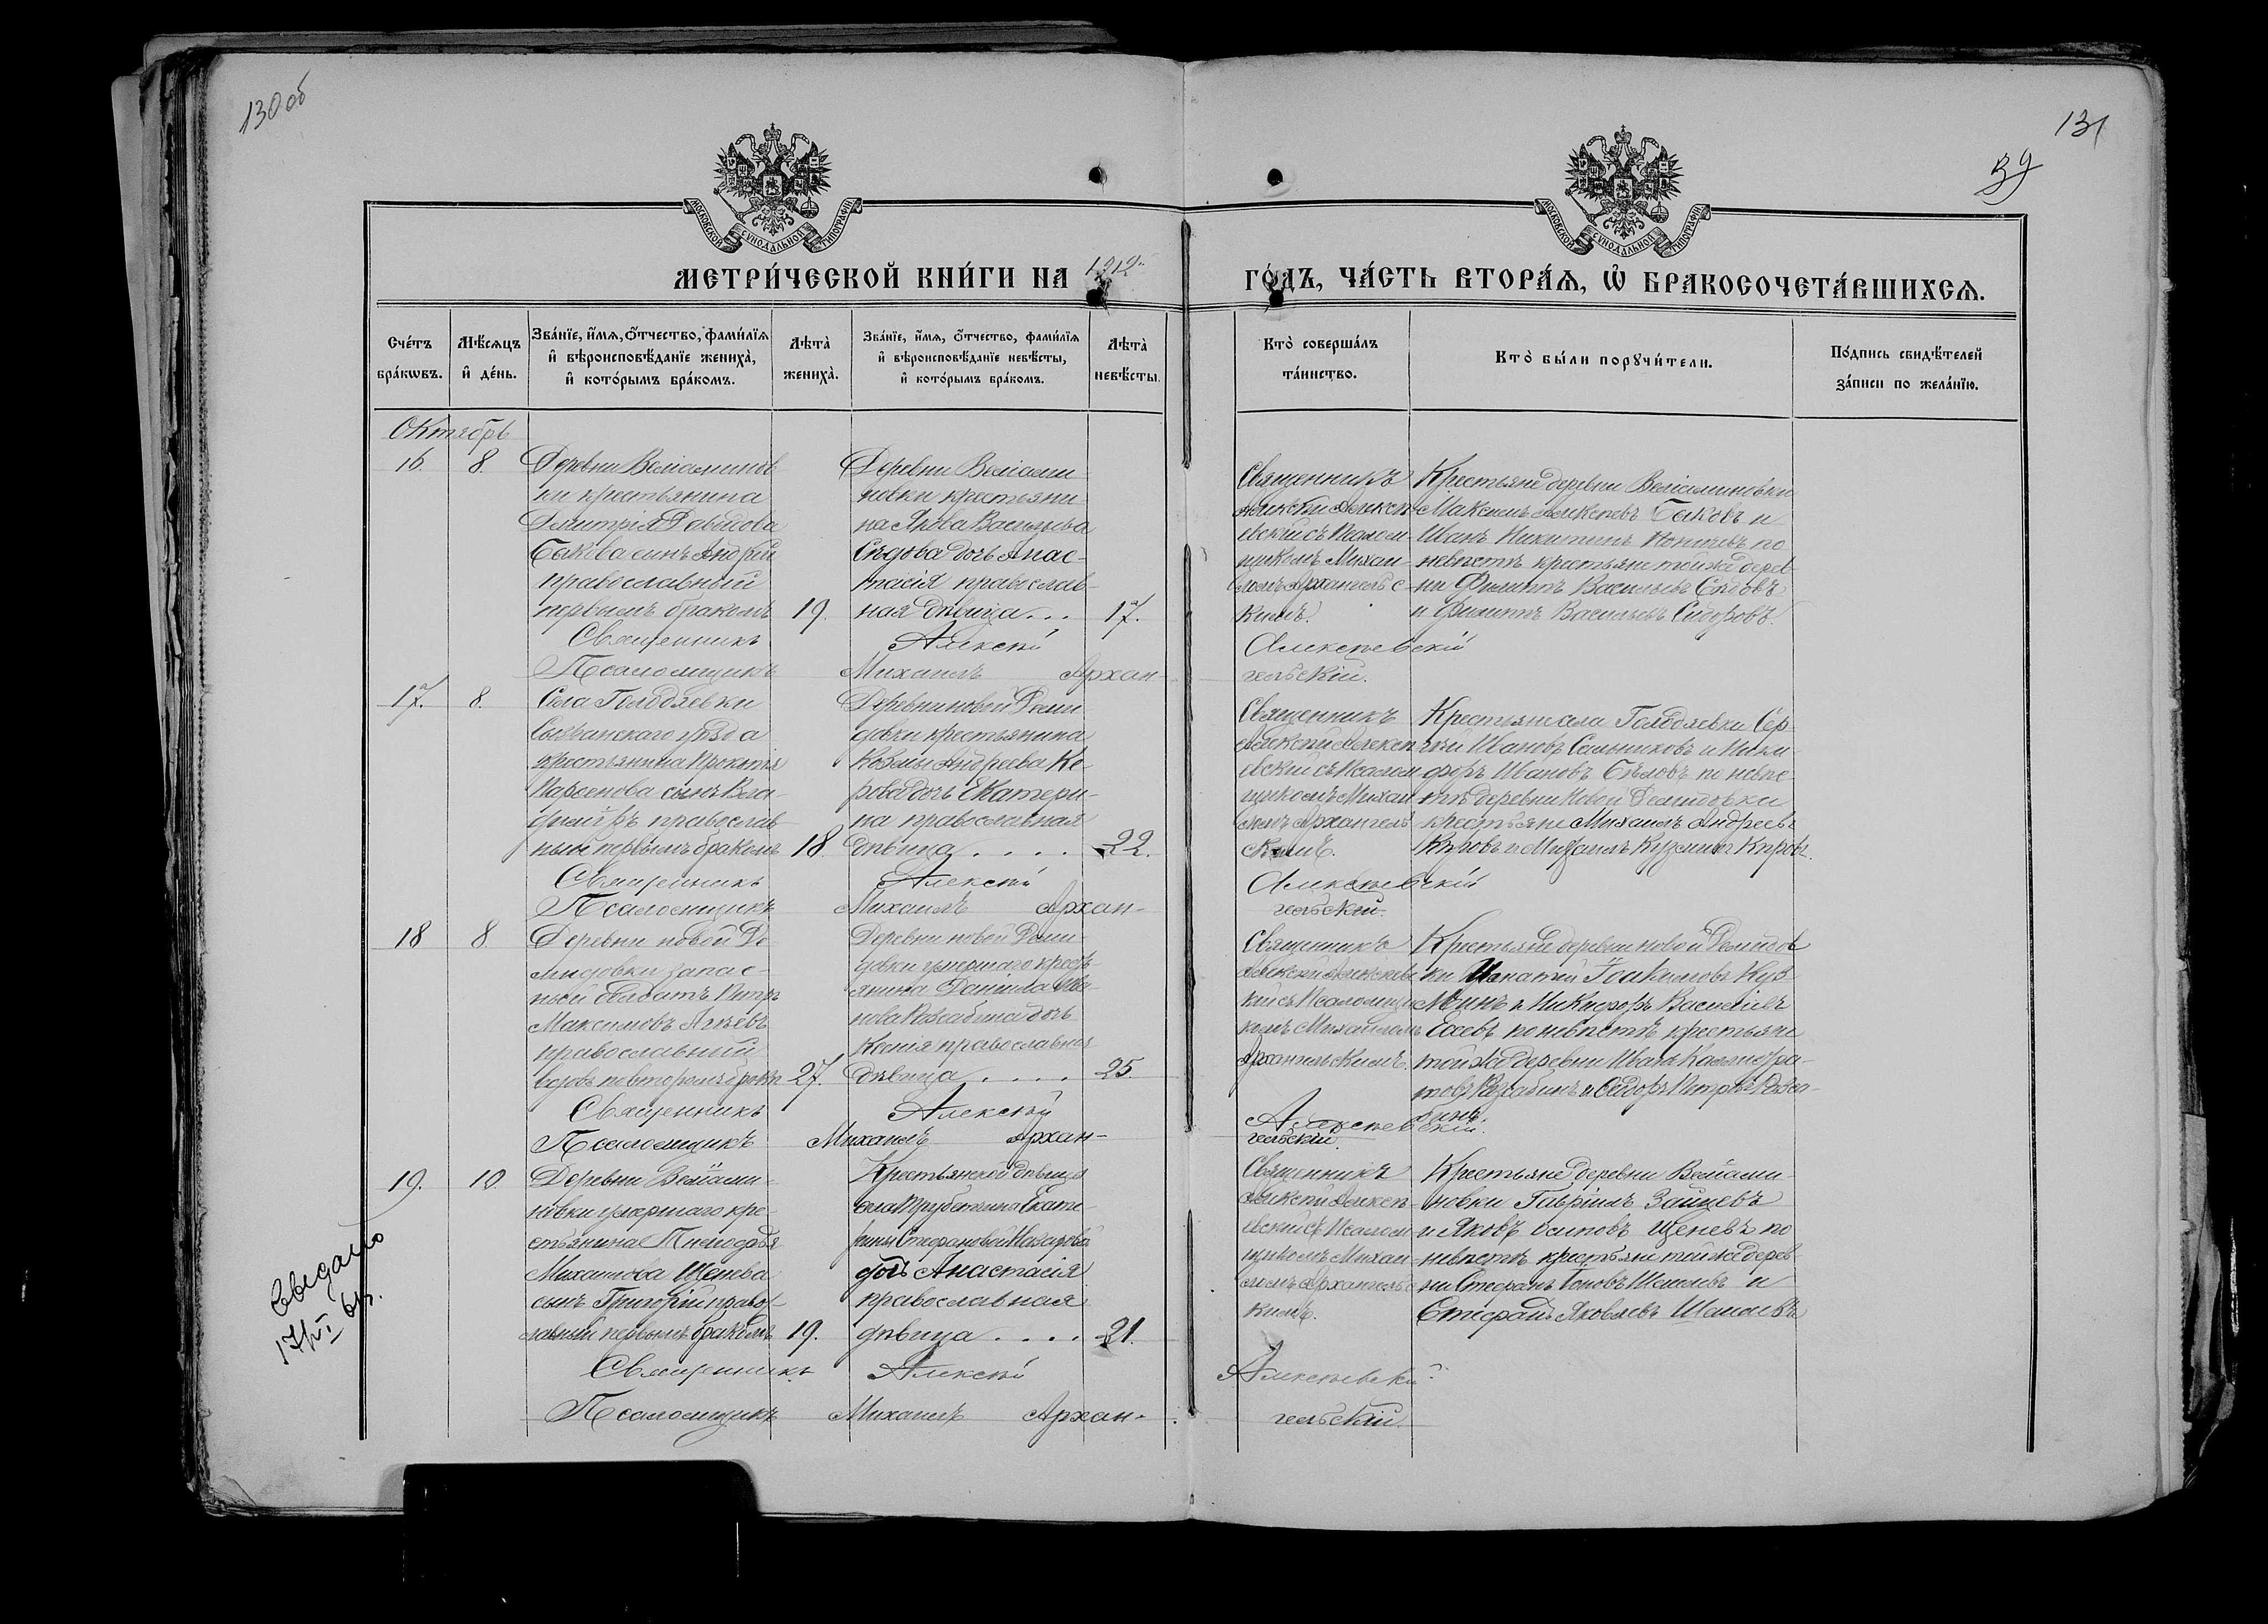 130 об
131
39
МОСКОВСКОЙ СѴНОДАЛЬНОЙ ТИПОГРАФІИ
МОСКОВСКОЙ СѴНОДАЛЬНОЙ ТИПОГРАФІИ
МЕТРИ́ЧЕСКОЙ КНИ́ГИ НА 1912
ГО́ДЪ, ЧА́СТЬ ВТОРА́Ѧ, Ѡ҆ БРАКОСОЧЕТА́ВШИХСѦ.
Сче́тъ бра́кѡвъ.
Мѣ́сѧцъ и҆ де́нь.
Зва́нїе, и҆́мѧ, ѻ҆́тчество, фами́лїѧ
и҆ вѣроисповѣ́данїе жениха̀,
и҆ кото́рымъ бра́комъ.
Лѣта̀ жениха̀.
Зва́нїе, и҆́мѧ, ѻ҆́тчество, фами́лїѧ
и҆ вѣроисповѣ́данїе невѣ́сты,
и҆ кото́рымъ бра́комъ.
Лѣта̀ невѣ́сты.
Кто̀ соверша́лъ та́инство.
Кто̀ бы́ли порꙋчи́тели.
По́дпись свидѣ́телей
за́писи по жела́нїю.
Октябрь
16. 8.
Деревни Веліаминов
ки крестьянина
Димитрія Давыдова
Быкова сынъ Андрей
православный
первымъ бракомъ 19.
Деревни Веліами
новки крестьяни
на Якова Васильева
Сѣдова дочь Анас-
тасія православ-
ная дѣвица... 17.
Священникъ
Алексій Алексѣ
евскій съ Псалом
щикомъ Михаи
ломъ Архангельс
кимъ.
Крестьяне деревни Веліаминовки
Максимъ Алексѣевъ Быковъ и
Иванъ Никитинъ по
невѣстѣ крестьяне тойже дерев
ни Филиппъ Васильевъ Сѣдовъ
и Филиппъ Васильевъ Сидоровъ.
Священникъ Алексій Алексѣевскій
Псаломщикъ Михаилъ Архан-
гельскій.
17. 8.
Села Голодяевки
Сызранскаго уѣзда
крестьянина
Парѳенова сынъ Вла-
диміръ православ
ный первымъ бракомъ 18.
Деревни новой Деми
довки крестьянина
Козьмы Андреева Ки-
рова дочь Екатери-
на православная
дѣвица.... 22.
Священникъ
Алексій Алексѣ
евскій съ Псалом
щикомъ Михаи
ломъ Архангель
скимъ.
Крестьяне села Голодяевки Сер-
гѣй Ивановъ Сальниковъ и Ники
форъ Ивановъ Бѣловъ по невѣс
тѣ деревни Новой Демидовки
крестьяне Михаилъ Андреевъ
Кировъ и Михаилъ Кузьминъ Кировъ.
Священникъ Алексій Алексѣевскій
Псаломщикъ Михаилъ Архан-
гельскій.
18 8
Деревни новой Де
мидовки запас-
ный солдатъ Петръ
Максимовъ
православный
вдовъ повторымъ бракомъ 27.
Деревни новой Деми-
довки умершаго кресть
янина Даніила Ива-
нова дочь
Ксенія православная
дѣвица.... 25.
Священникъ
Алексій Алексѣевс
кій съ Псаломщи
комъ Михаиломъ
Архангельскимъ.
Крестьяне деревни новой Демидов
ки Игнатій Іоакимовъ Куз
минъ и Никифоръ Васильевъ
по невѣстѣ крестьяне
тойже деревни Иванъ
и Сидоръ Петровъ
Священникъ Алексѣй Алексѣевскій.
Псаломщикъ Михаилъ Архан-
гельскій.
19. 10.
Деревни Веліами-
новки умершаго кре-
стьянина Тимоѳея
Михайлова Щенева
сынъ Григорій правос-
лавный первымъ бракомъ 19.
Крестьянской дѣвицы
села Трубетчина Екате-
рины Стефановой Назаровой
дочь Анастасія
православная
дѣвица.... 21.
Священникъ
Алексій Алексѣ
евскій съ Псалом
щикомъ Михаи
ломъ Архангельс
кимъ.
Крестьяне деревни Веліами-
новки Гавріилъ Зайцевъ
и Яковъ Осиповъ Щеневъ по
невѣстѣ крестьяне тойже дерев
ни Стефанъ Іоновъ и
Стефанъ Яковлевъ
Священникъ Алексій Алексѣевскій
Псаломщикъ Михаилъ Архан-
гельскій.
17/VI 61г.